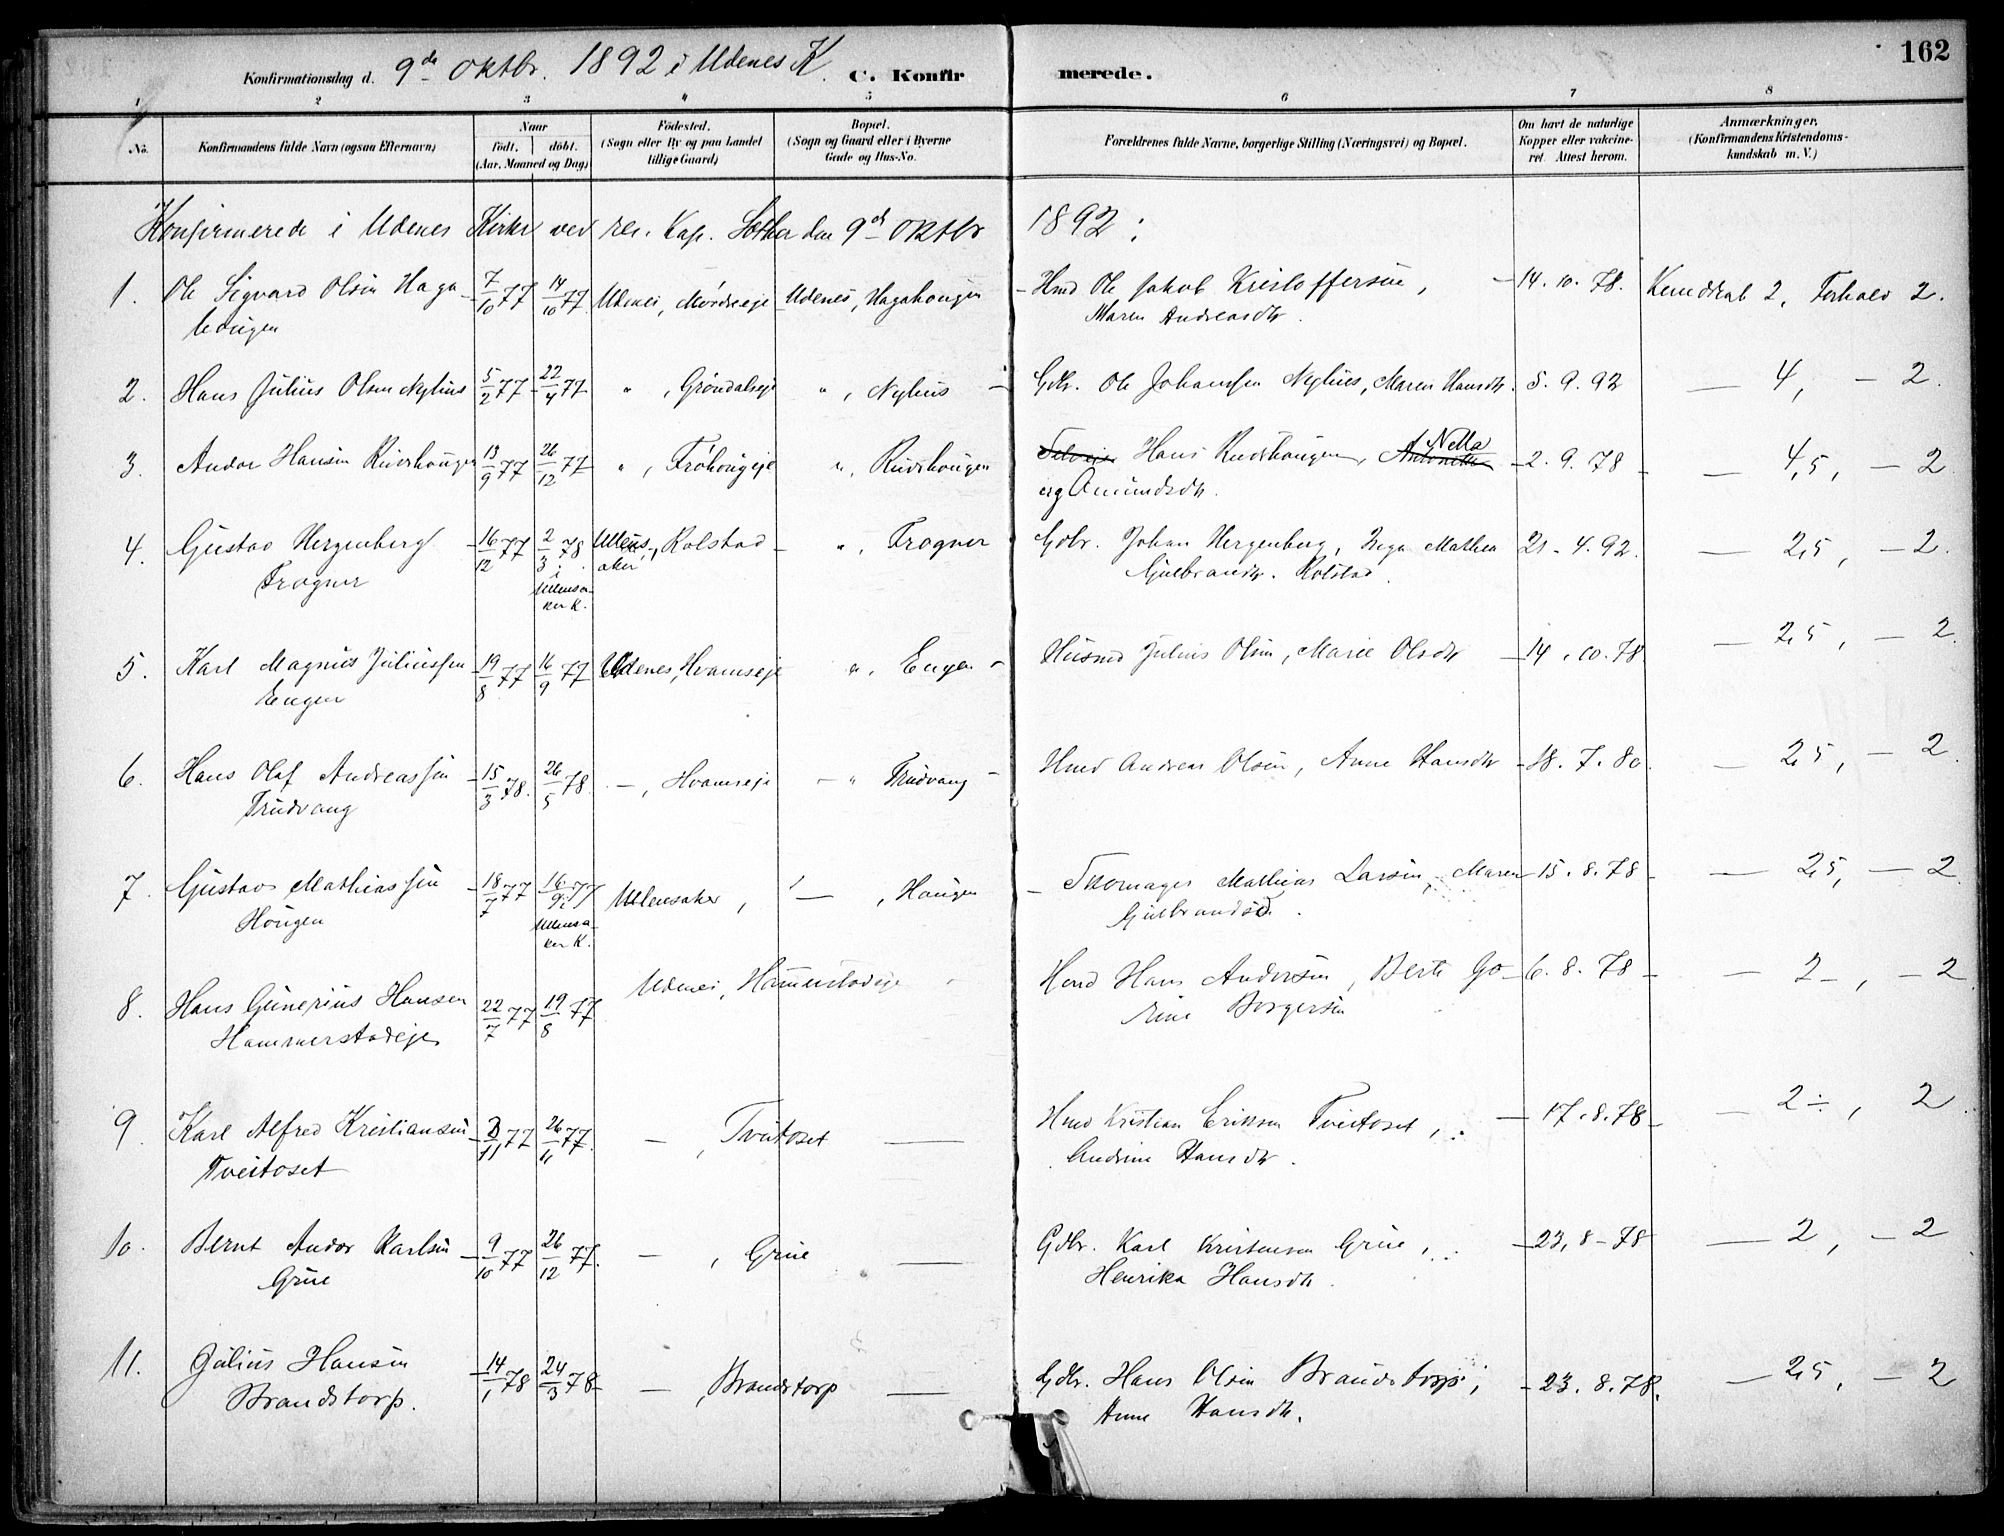 162
Konfirmationsdag d. 9de Oktbr. 1892 i Udenes K. C. Konfir merede.
1 2 3 4 5 6 7 8
No.
Konfirmandens fulde Navn (ogsaa Efternavn)
Naar
født. døbt.
(Aar, Maaned og Dag)
Fødested.
(Sogn eller By og paa Landet
tillige Gaard)
Bopæl.
(Sogn og Gaard eller i Byerne
Gade og Hus-No.
Forældrenes fulde Navne, borgerlige Stilling (Næringsvei) og Bopæl.
Om havt de naturlige
Kopper eller vakcine-
ret. Attest herom.
Anmærkninger.
(Konfirmandens Kristendoms-
kundskab m. V.)
Konfirmerede i Udenes Kirke ved res. Kap. Sæther den 9de Oktbr 1892:
1. Ole Sigvard Olsen Haga- 7/10 77 14/10 77 Udenes, Mørdreeje Udenes, Hagahougen Hmd Ole Jakob Kristoffersen, 14.10.78. Kundskab 2, Forhold 2.
hougen Maren Andreasdtr.
2. Hans Julius Olsen Nyhus 5/2 77 22/4 77 " , Grøndalseje " , Nyhus Gbr. Ole Johansen Nyhus, Maren Hansdtr. 5.9.92 — 4, — 2.
3. Andor Hansen Rudshougen 13/9 77 26/12 77 " , Frøhougeje " , Rudshougen Hans Rudshougen, Nella 2.9.78 — 4,5, — 2
Amundsdtr.
4. Gustav Hergenberg 16/12 77 2/3 78 Ullens-, Rolstad " , Frogner Gdbr. Johan Hergenberg, Inga Mathea 21-4.92. — 2,5, — 2.
Frogner i aker Gulbrandsdtr. Rolstad.
Ullensa-
ker K.
5. Karl Magnus Juliussen 19/8 77 16/9 77 Udenes, Hvamseje " , Engen Husmd Julius Olsen, Marie Olsdtr 14.10.78 — 2,5, — 2.
Engen
6. Hans Olaf Andreassen 15/3 78. 26/5 78. —, Hvamseje — " Trudvang Hmd Andreas Olsen, Anne Hansdtr 18.7.80 — 2,5, — 2.
Trudvang
7. Gustav Mathiassen 18/7 77 16/9 77 Ullensaker, — , Hougen Skomager Mathias Larsen, Maren 15.8.78 — 2,5, — 2
Hougen i Gulbrandsd.
Ullensa-
ker K.
8. Hans Gunerius Hansen 22/7 77 19/8 77 Udenes, Hammerstadeje Hmd Hans Andersen, Berte Go- 6.8.78 — 2-, — 2
Hammerstadeje rine Borgersen
9. Karl Alfred Kristiansen 3/11 77 26/11 77. — , Tveitoset — Hmd Kristian Eriksen Tveitoset, 17.8.78 — 2÷, 2
Tveitoset Andrine Hansdtr.
10. Bernt Andor Karlsen 9/10 77 26/12 77. — , Grue — Gdbr. Karl Kristensen Grue, 23,8-78 — 2, — 2
Grue Henrika Hansdtr.
11. Julius Hansen 14/1 78 24/3 78 — , Brandstorp — Gdbr. Hans Olsen Brandstorp, 23.8.78. — 2,5, — 2
Brandstorp. Anne Hansdtr.